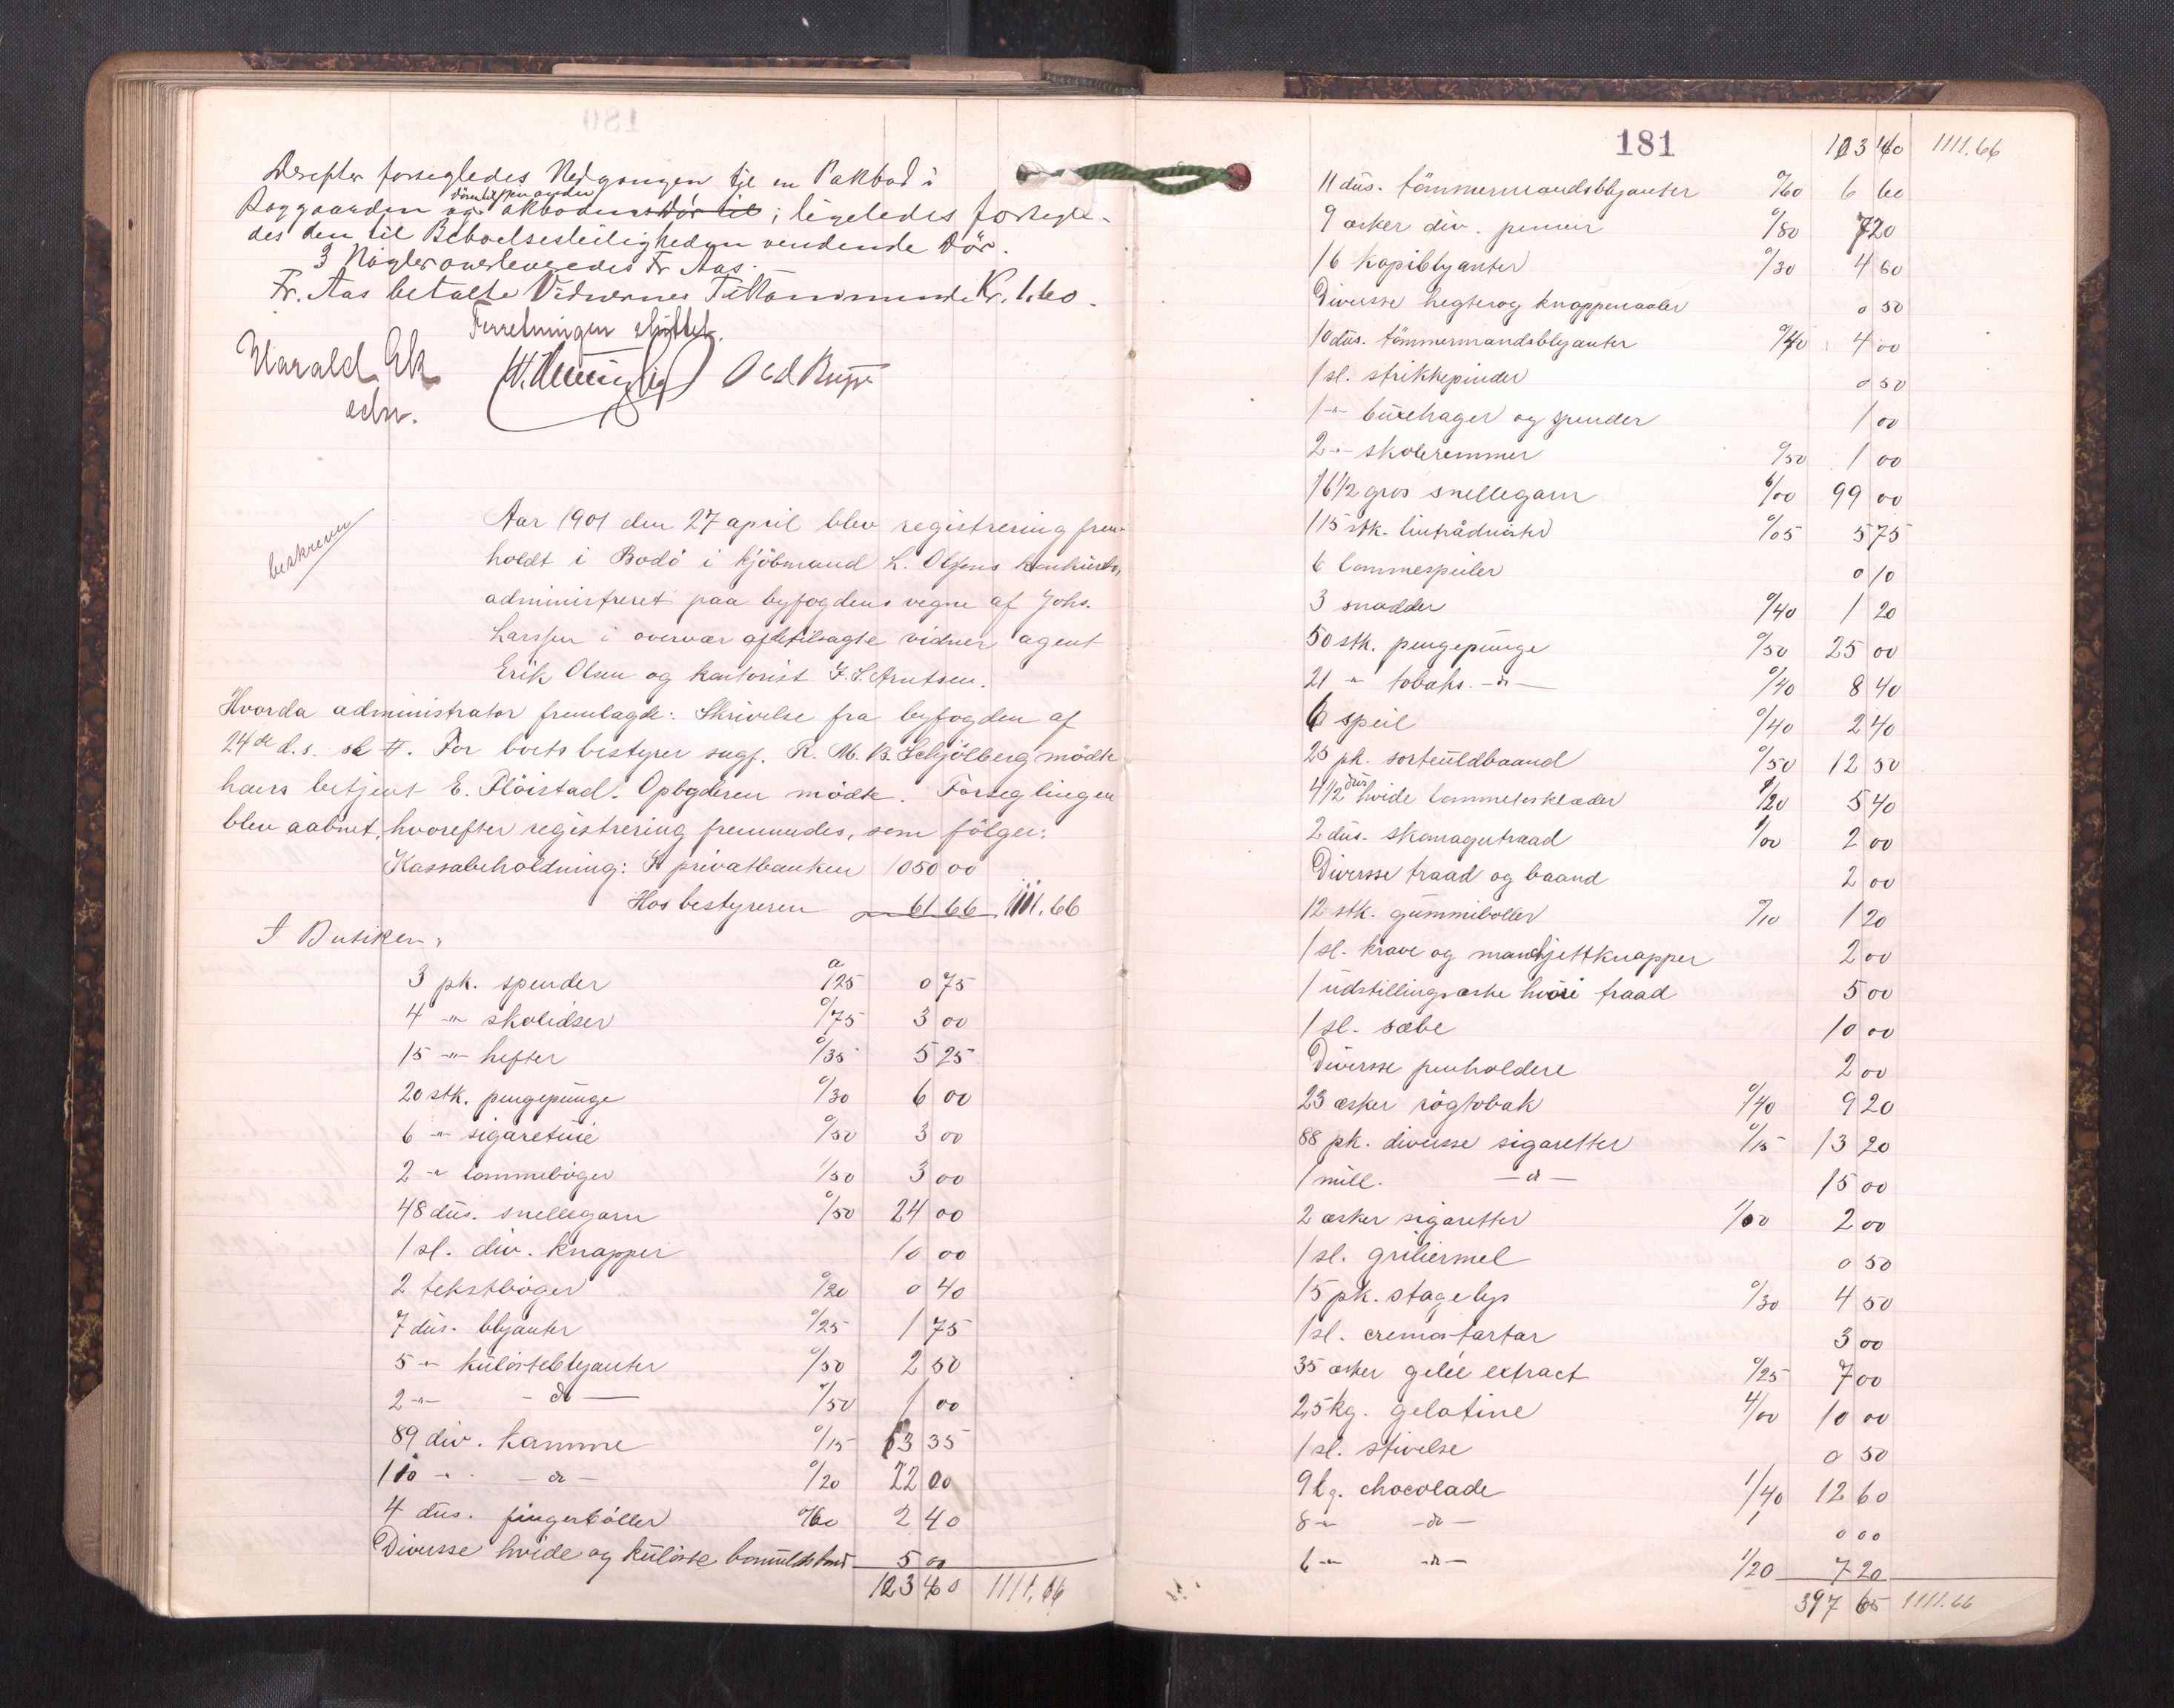 Derefter forsegledes Nedgangen til en Pakbod i
Baggaarden og
des den til Beboelsesleiligheden vendende Dör.
3 Nögler overleveredes Fr. Aas.
Fr. Aas betalte Vidnernes Tilkommende Kr. 1.60.
Forretningen sluttet.
Harald Ek
edsv.
beskreven
Aar 1901 den 27 april blev registrering frem-
holdt i Bodö i kjöbmand L. Olsens konkursbo,
administreret paa byfogdens vegne af Johs.
Larssen i overvær af tilsagte vidner agent
Erik Olsen og kontorist J. S. Arntsen.
Hvorda administrator fremlagde: Skrivelse fra byfogden af
24de d.s. For boets bestyrer sagf. R. M. B. Schjölberg mödte
hans betjent E. Flöistad. Opbyderen mödte. Forseglingen
blev aabnet, hvorefter registrering fremmedes, som fölger:
Kassabeholdning: I privatbanken 1050 00
Hos bestyreren 61 66 1111.66
I Butiken:
3 pk. spender a /25 0 75
4 -"- skolidser 0/75 3 00
15 -"- hefter 0/35 5 25
20 stk. pengepunge 0/30 6 00
6 -"- sigaretuie 0/50 3 00
2 -"- lommebøger 1/50 3 00
48 dus. snellegarn 0/50 24 00
1 sl. div. knapper 10 00
2 tekstbøger 0/20 0 40
7 dus. blyanter 0/25 1 75
5 -"- kulörteblyanter 0/50 2 50
2 -"- - do - 0/50 1 00
89 div. kamme 0/15 13 35
110 -"- - do - 0/20 22 00
4 dus. fingerböller 0/60 2 40
Diverse hvide og kulörte bomuldsbaand 5 00
103 40 1111.66
181
103 40 1111.66
11 dus. tömmermandsblyanter 0/60 6 60
9 æsker div. penner 0/80 7 20
16 kopiblyanter 0/30 4 80
Diversse hegter og knappenaaler 0 50
10 dus. tömmermandsblyanter 0/40 4 00
1 sl. strikkepinder 0 50
1 -"- buxehager og spender 1 00
2 -"- skoleremmer 0/50 1 00
16 1/2 gros snellegarn 6/00 99 00
115 stk. lintrådnöster 0/05 5 75
6 lommespeiler 0 10
3 snadder 0/40 1 20
50 stk. pengepunge 0/50 25 00
21 -"- tobaks -do- 0/40 8 40
6 speil 0/40 2 40
25 pk. sorteuldbaand 0/50 12 50
4 1/2 dus hvide lommetørklæder 1/20 5 40
2 dus. skomagertraad 1/00 2 00
Diversse traad og baand 2 00
12 stk. gummiboller 0/10 1 20
1 sl. krave og manchjettknapper 2 00
1 udstillingsæske hvori traad 5 00
1 sl. sæbe 10 00
Diversse penholdere 2 00
23 æsker rögtobak 0/40 9 20
88 pk. diversse sigaretter 0/15 13 20
1 mill. -do- 15 00
2 æsker sigaretter 1/00 2 00
1 sl. griliermel 0 50
15 pk. stagelys 0/30 4 50
1 sl. cremortartar 3 00
35 æsker gelée extract 0/25 7 00
2,5 kg. gelatine 4/00 10 00
1 sl. stivelse 0 50
9 kg. chocolade 1/40 12 60
8 -"- -do- 0 00
6 -"- -do- 1/20 7 20
397 65 1111.66